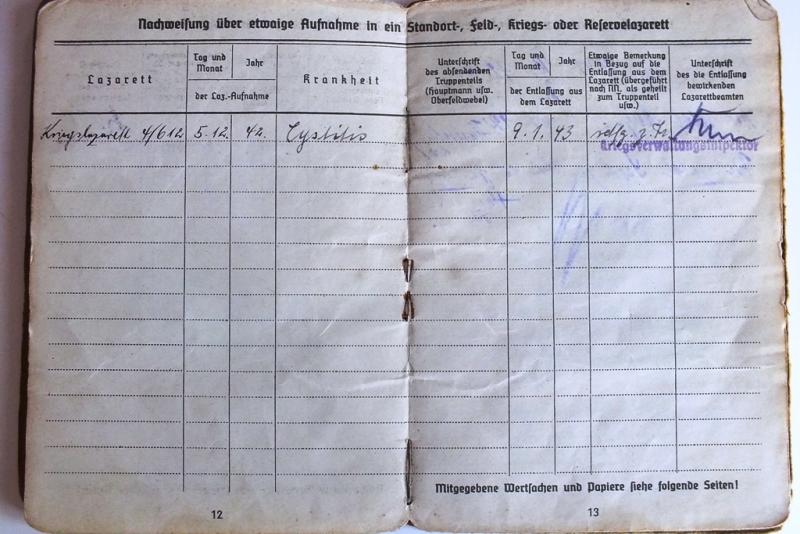 Nachweisung über etwaige Aufnahme in ein Standort-, Feld-, Kriegs- oder Reservelazarett
Lazarett
Tag und
Monat
Jahr
der Laz.-Aufnahme
Krankheit
Unterschrift
des absendenden
Truppenteils
(Hauptmann usw.
Oberfeldwebel)
Tag und
Monat
Jahr
der Entlassung aus
dem Lazarett
Etwaige Bemerkung
in Bezug auf die
Entlassung aus dem
Lazarett (übergeführt
nach NN, als geheilt
zum Truppenteil
usw.)
Unterschrift
des die Entlassung
bewirkenden
Lazarettbeamten
Kriegslazarett 4/612 5.12. 42. Cystitis 9.1. 43
Kriegsverwaltungsinspektor
Mitgegebene Wertsachen und Papiere siehe folgende Seiten!
12
13